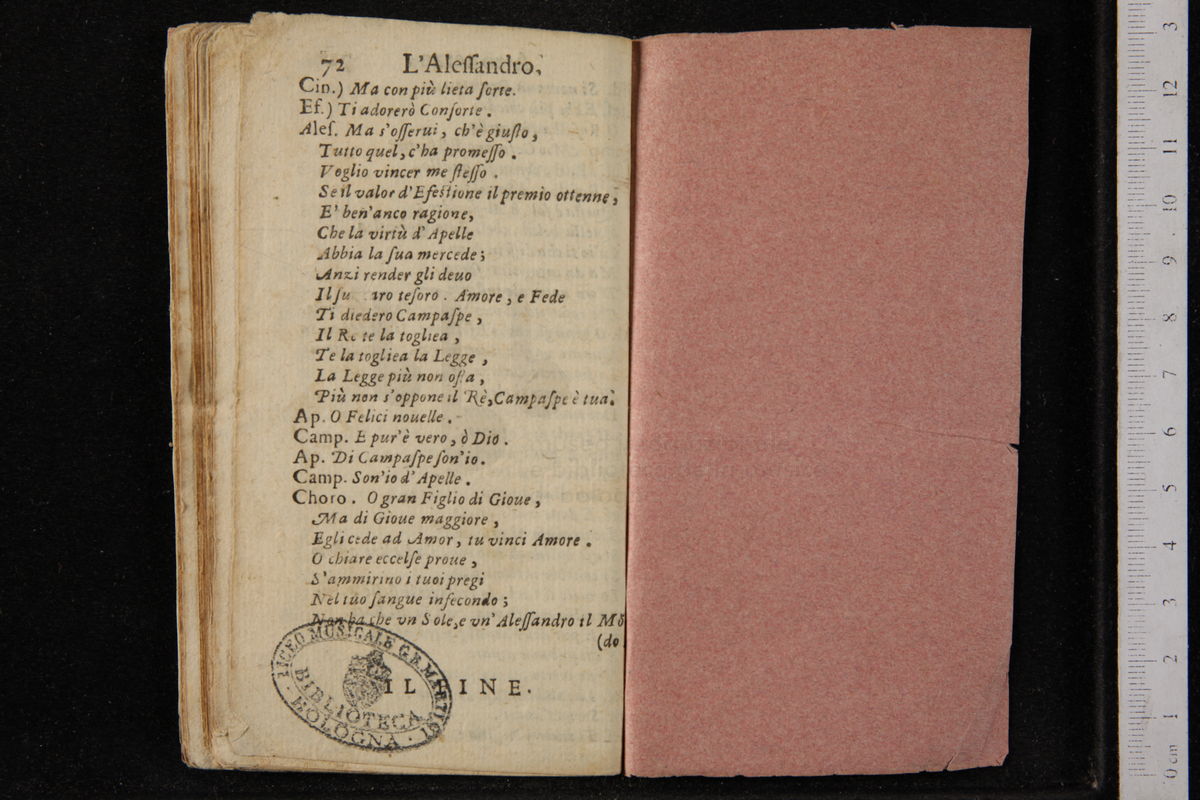 72 L'Aleſſandro,
Cin.) Ma con più lieta ſorte.
Ef.) Ti adorerò Conſorte.
Aleſ. Ma s'oſſerui, ch'è giuſto,
Tutto quel, c'ha promeſſo.
Voglio vincer me ſteſſo.
Se il valor d'Efeſtione il premio ottenne,
E' ben'anco ragione,
Che la virtù d'Apelle
Abbia la ſua mercede;
Anzi render gli deuo
Il teſoro. Amore, e Fede
Ti diedero Campaſpe,
Il Re te la togliea,
Te la togliea la Legge,
La Legge più non oſta,
Più non s'oppone il Rè, Campaſpe è tua.
Ap. O Felici nouelle.
Camp. E pur'è vero, ò Dio.
Ap. Di Campaſpe ſon'io.
Camp. Son'io d'Apelle.
Choro. O gran Figlio di Gioue,
Ma di Gioue maggiore,
Egli cede ad Amor, tu vinci Amore.
O chiare eccelſe proue,
S'ammirino i tuoi pregi
Nel tuo ſangue infecondo;
Non ha che vn Sole, e vn'Aleſſandro il Mõ
(do.
IL FINE.
LICEO MUSICALE G.B. MARTINI
BIBLIOTECA
BOLOGNA
0 cm 1 2 3 4 5 6 7 8 9 10 11 12 13